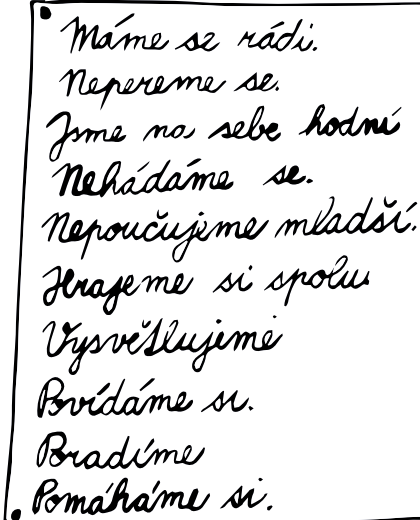 Máme se rádi.
Nepereme se.
Jsme na sebe hodní
Nehádáme se.
Nepoučujeme mladší.
Hrajeme si spolu
Vysvětlujeme
Povídáme si.
Poradíme
Pomáháme si.